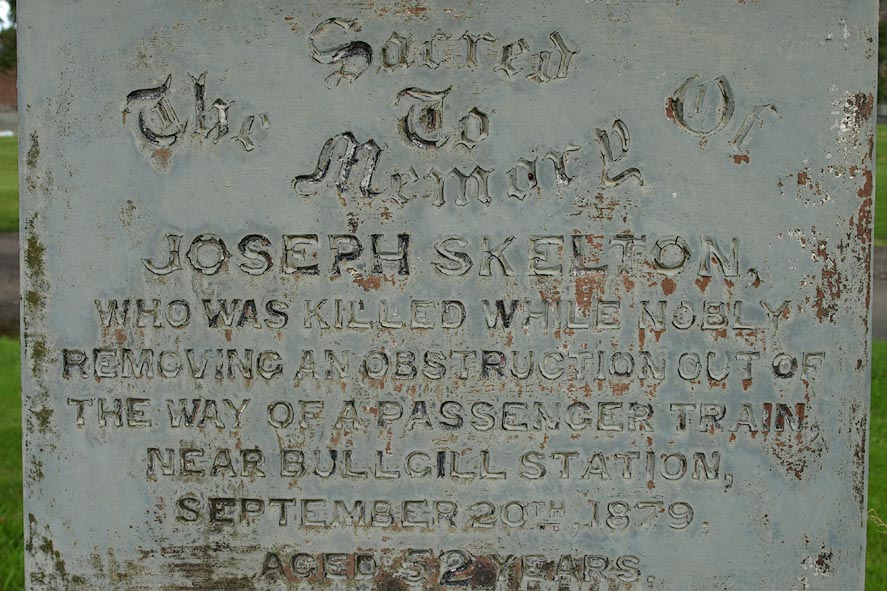 Sacred
To
The Memory Of
JOSEPH SKELTON,
WHO WAS KILLED WHILE NOBLY
REMOVING AN OBSTRUCTION OUT OF
THE WAY OF A PASSENGER TRAIN,
NEAR BULLGILL STATION,
SEPTEMBER 20TH, 1879.
AGED 52 YEARS.